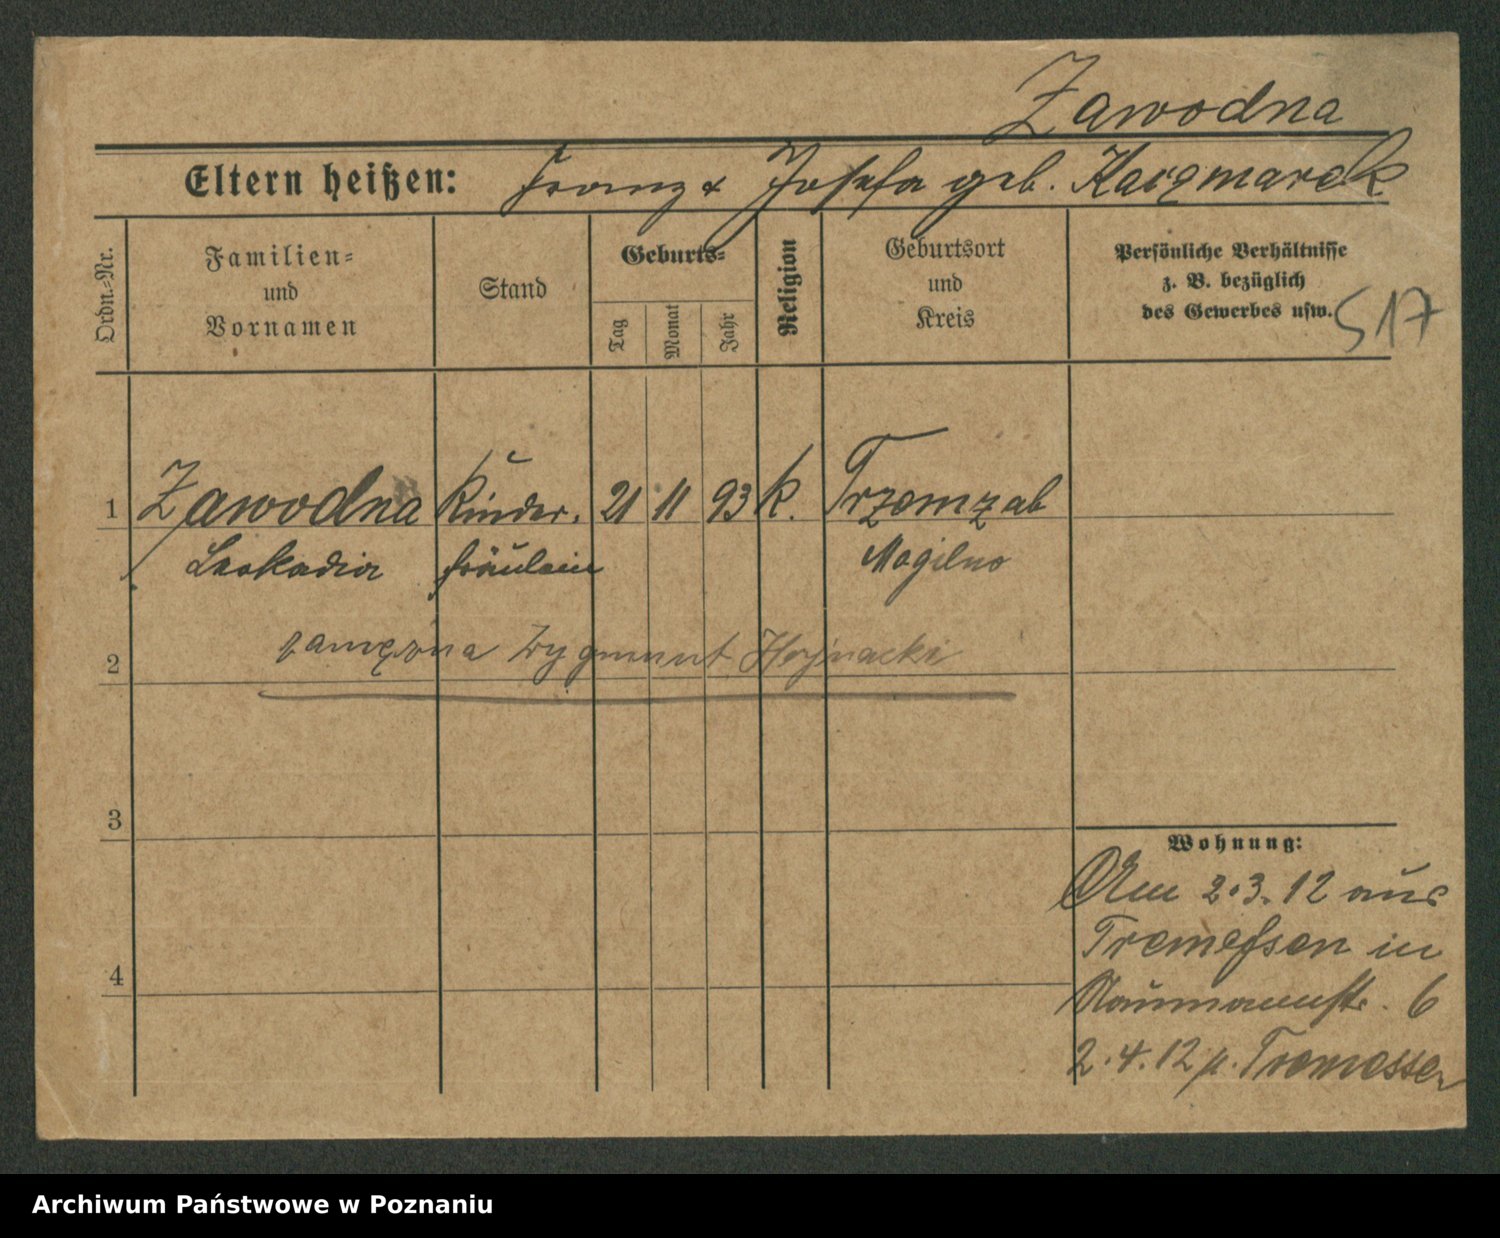 Zawodna
Eltern heißen: Franz & Josefa geb. Kaczmarek
Ordn.-Nr.
Familien-
und
Vornamen
Stand
Geburts-
Tag
Monat
Jahr
Religion
Geburtsort
und
Kreis
Persönliche Verhältnisse
z. B. bezüglich
des Gewerbes usw.
517
1 Zawodna Kinder- 21 11 93 k. Trzemzab
Leokadia fräulein Mogilno
2 zamężna Zygmunt Hojnacki
3
Wohnung:
Am 2.3.12 aus
Tremessen in
4
Naumannstr. 6
2.4.12 n. Tremessen
Archiwum Państwowe w Poznaniu